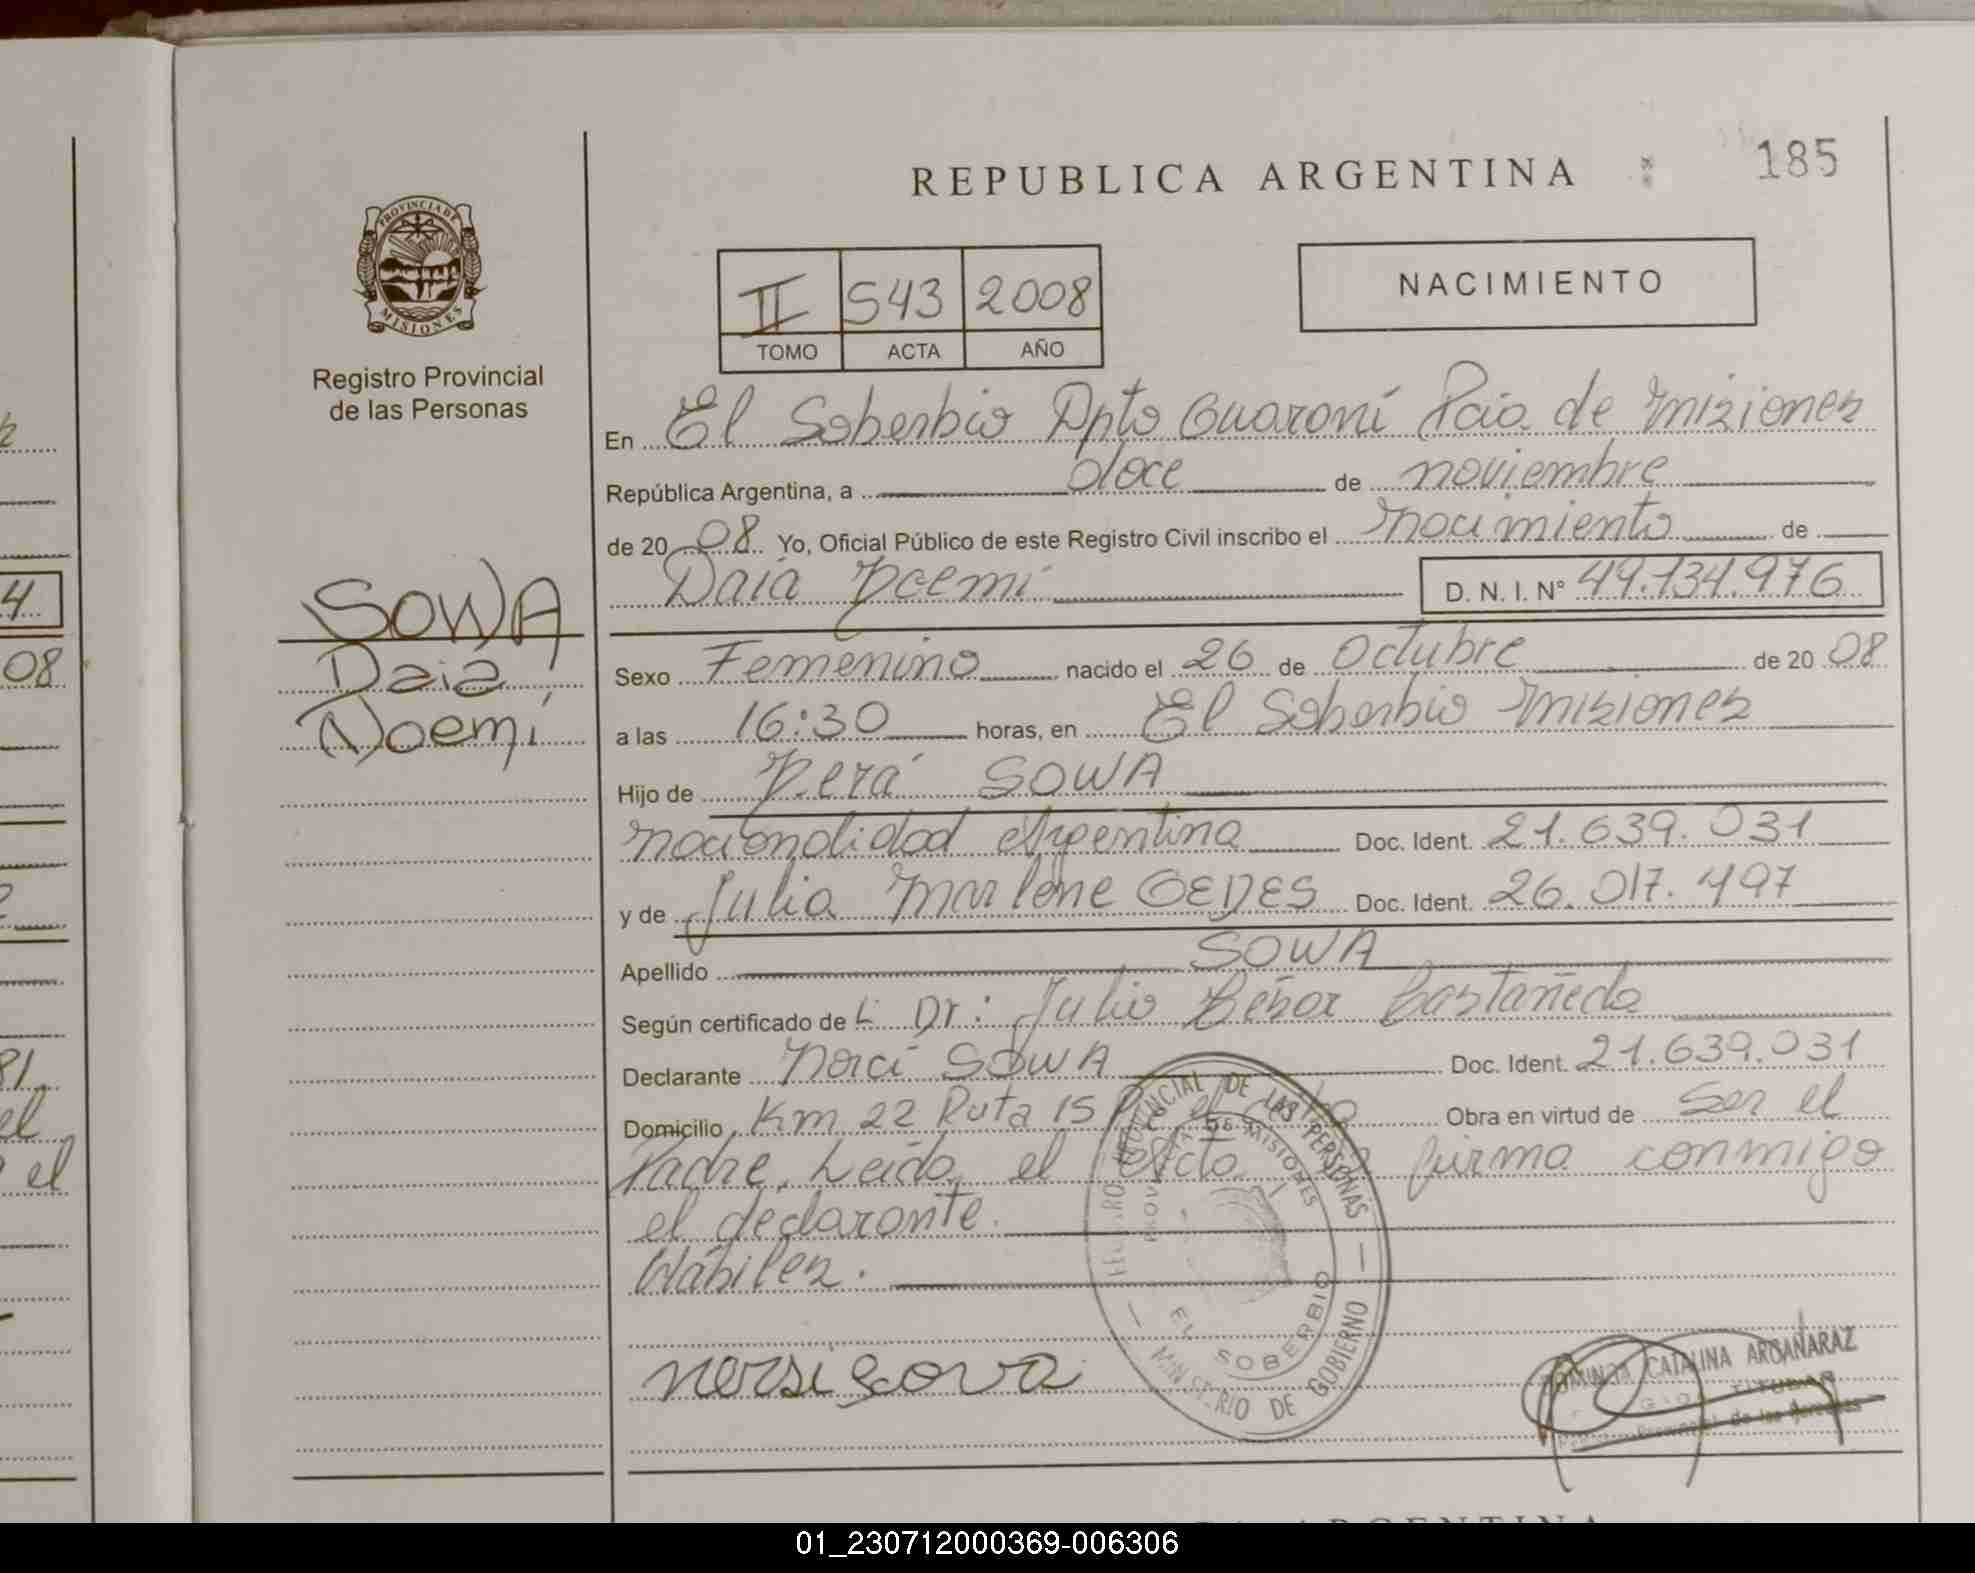 REPUBLICA ARGENTINA
185
PROVINCIA DE
MISIONES
Registro Provincial
de las Personas
II 543 2008
TOMO ACTA AÑO
NACIMIENTO
En El Soberbio Dpto Guaraní Pcia de Misiones
República Argentina, a doce de noviembre
de 20 08 Yo, Oficial Público de este Registro Civil inscribo el nacimiento de
Daiá Noemí D. N. I. N° 49.134.976
SOWA
Daiá
Noemí
Sexo Femenino nacido el 26 de Octubre de 20 08
a las 16:30 horas, en El Soberbio Misiones
Hijo de SOWA
nacionalidad Argentina Doc. Ident. 21.639.031
y de Julia Marlene GEDES Doc. Ident. 26.017.497
Apellido SOWA
Según certificado de L Dr: Julio Cesar Castañeda
Declarante Nerci SOWA Doc. Ident. 21.639.031
Domicilio Km 22 Ruta 15 Obra en virtud de Ser el
Padre. Leída el Acta firma conmigo
el declarante.
Hábiles.
nersi sova
PROVINCIAL DE LAS PERSONAS
PROVINCIA DE MISIONES
EL SOBERBIO
MINISTERIO DE GOBIERNO
CATALINA ARGAÑARAZ
TITULAR
Provincial de las Personas
4
08
81
el
el
01_230712000369-006306